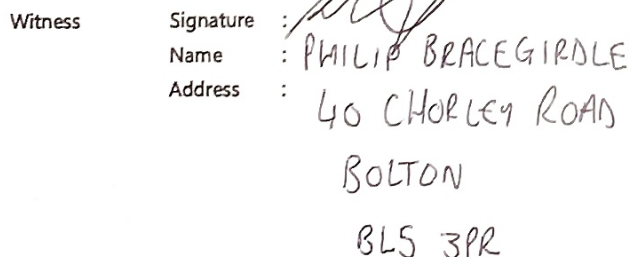 Witness Signature :
Name : PHILIP BRACEGIRDLE
Address : 40 CHORLEY ROAD
BOLTON
BL5 3PR